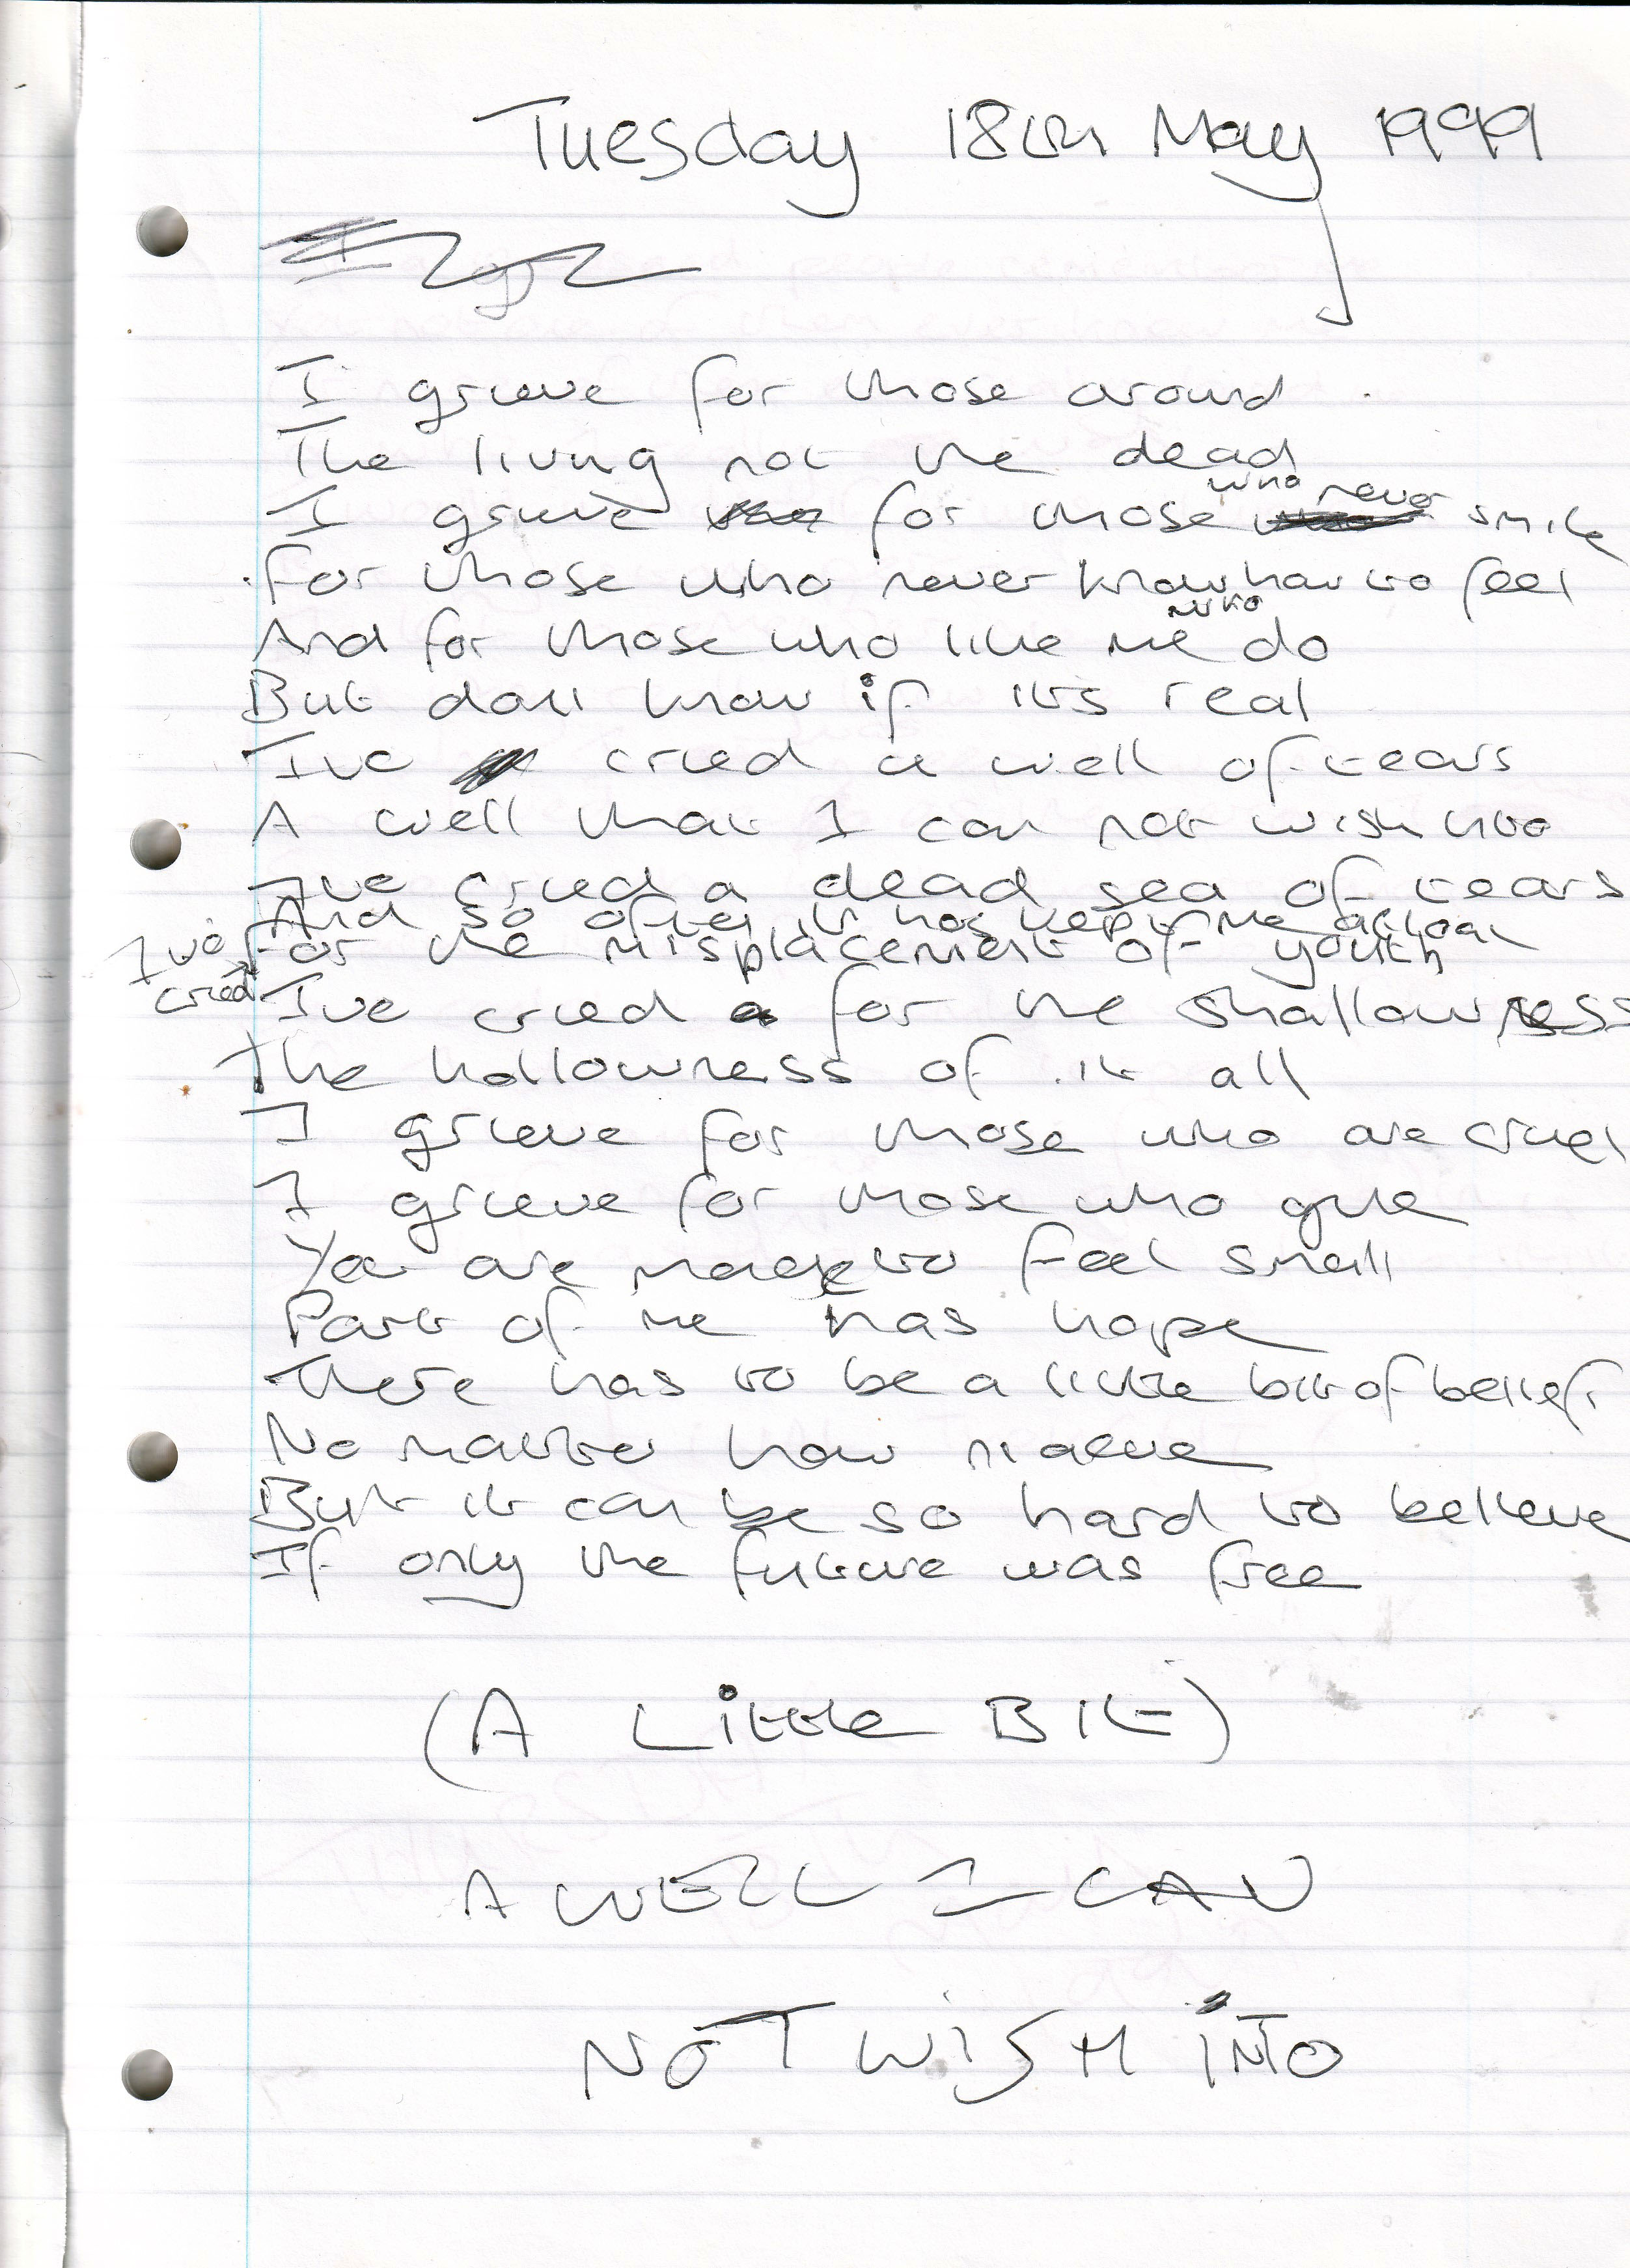 Tuesday 18th May 1999
I grieve for those around
The living not the dead
I grieve for those who never smile
For those who never know how to feel
And for those who like me who do
But dont know if its real
Ive cried a well of tears
A well that I can not wish into
Ive cried a dead sea of tears
And so often it has kept me afloat
Ive cried For the misplacement of youth
Ive cried for the shallowness
The hollowness of it all
I grieve for those who are cruel
I grieve for those who give
You are made to feel small
Part of me has hope
There has to be a little bit of belief
No matter how niaeve
But it can be so hard to believe
If only the future was free
(A Little Bit)
A WELL I CAN
NOT WISH INTO